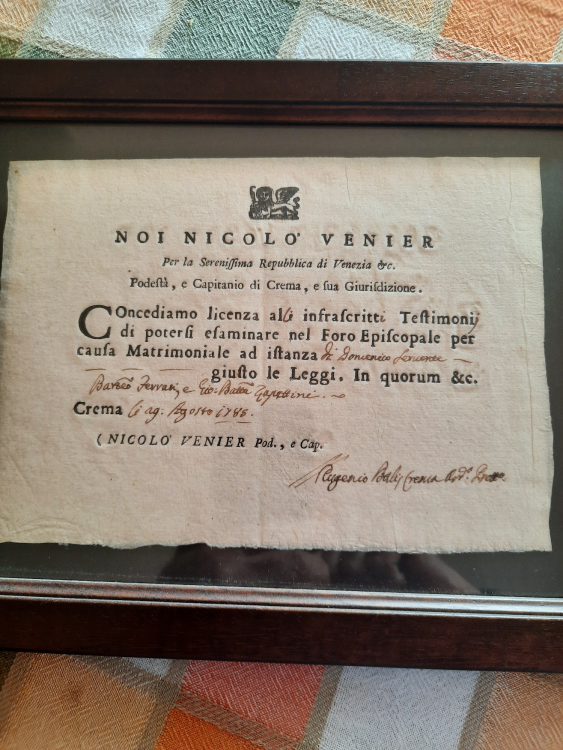 NOI NICOLO' VENIER
Per la Sereniſſima Repubblica di Venezia &c.
Podeſtà, e Capitanio di Crema, e sua Giuriſdizione.
COncediamo licenza alli infraſcritti Teſtimonij
di poterſi eſaminare nel Foro Epiſcopale per
cauſa Matrimoniale ad iſtanza di Domenico
giuſto le Leggi. In quorum &c.
Ferrari, e Gio: Batta
Crema li 29: Agosto 1788.
(NICOLO' VENIER Pod., e Cap.
Eugenio